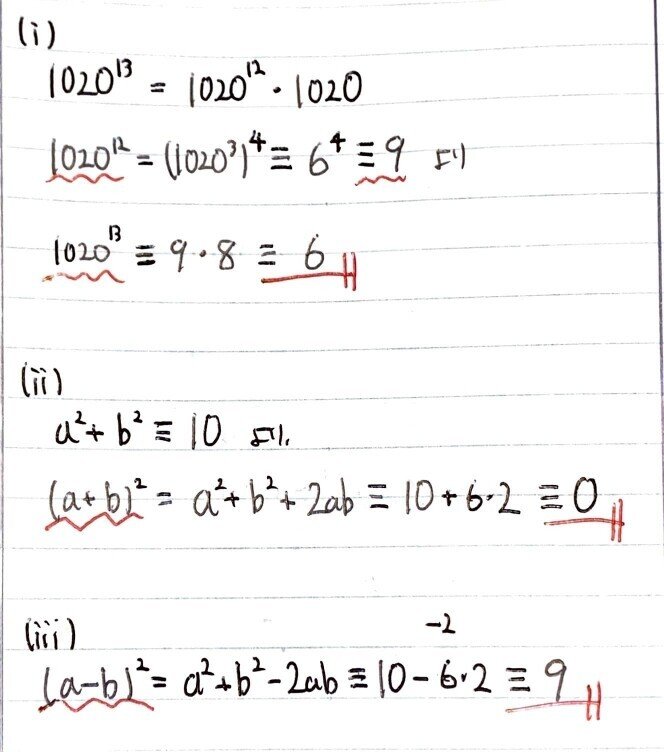 (i)
1020¹³ = 1020¹² · 1020
1020¹² = (1020³)⁴ ≡ 6⁴ ≡ 9 より
1020¹³ ≡ 9 · 8 ≡ 6
(ii)
a² + b² ≡ 10 より.
(a+b)² = a² + b² + 2ab ≡ 10 + 6·2 ≡ 0
(iii)
-2
(a-b)² = a² + b² - 2ab ≡ 10 - 6·2 ≡ 9